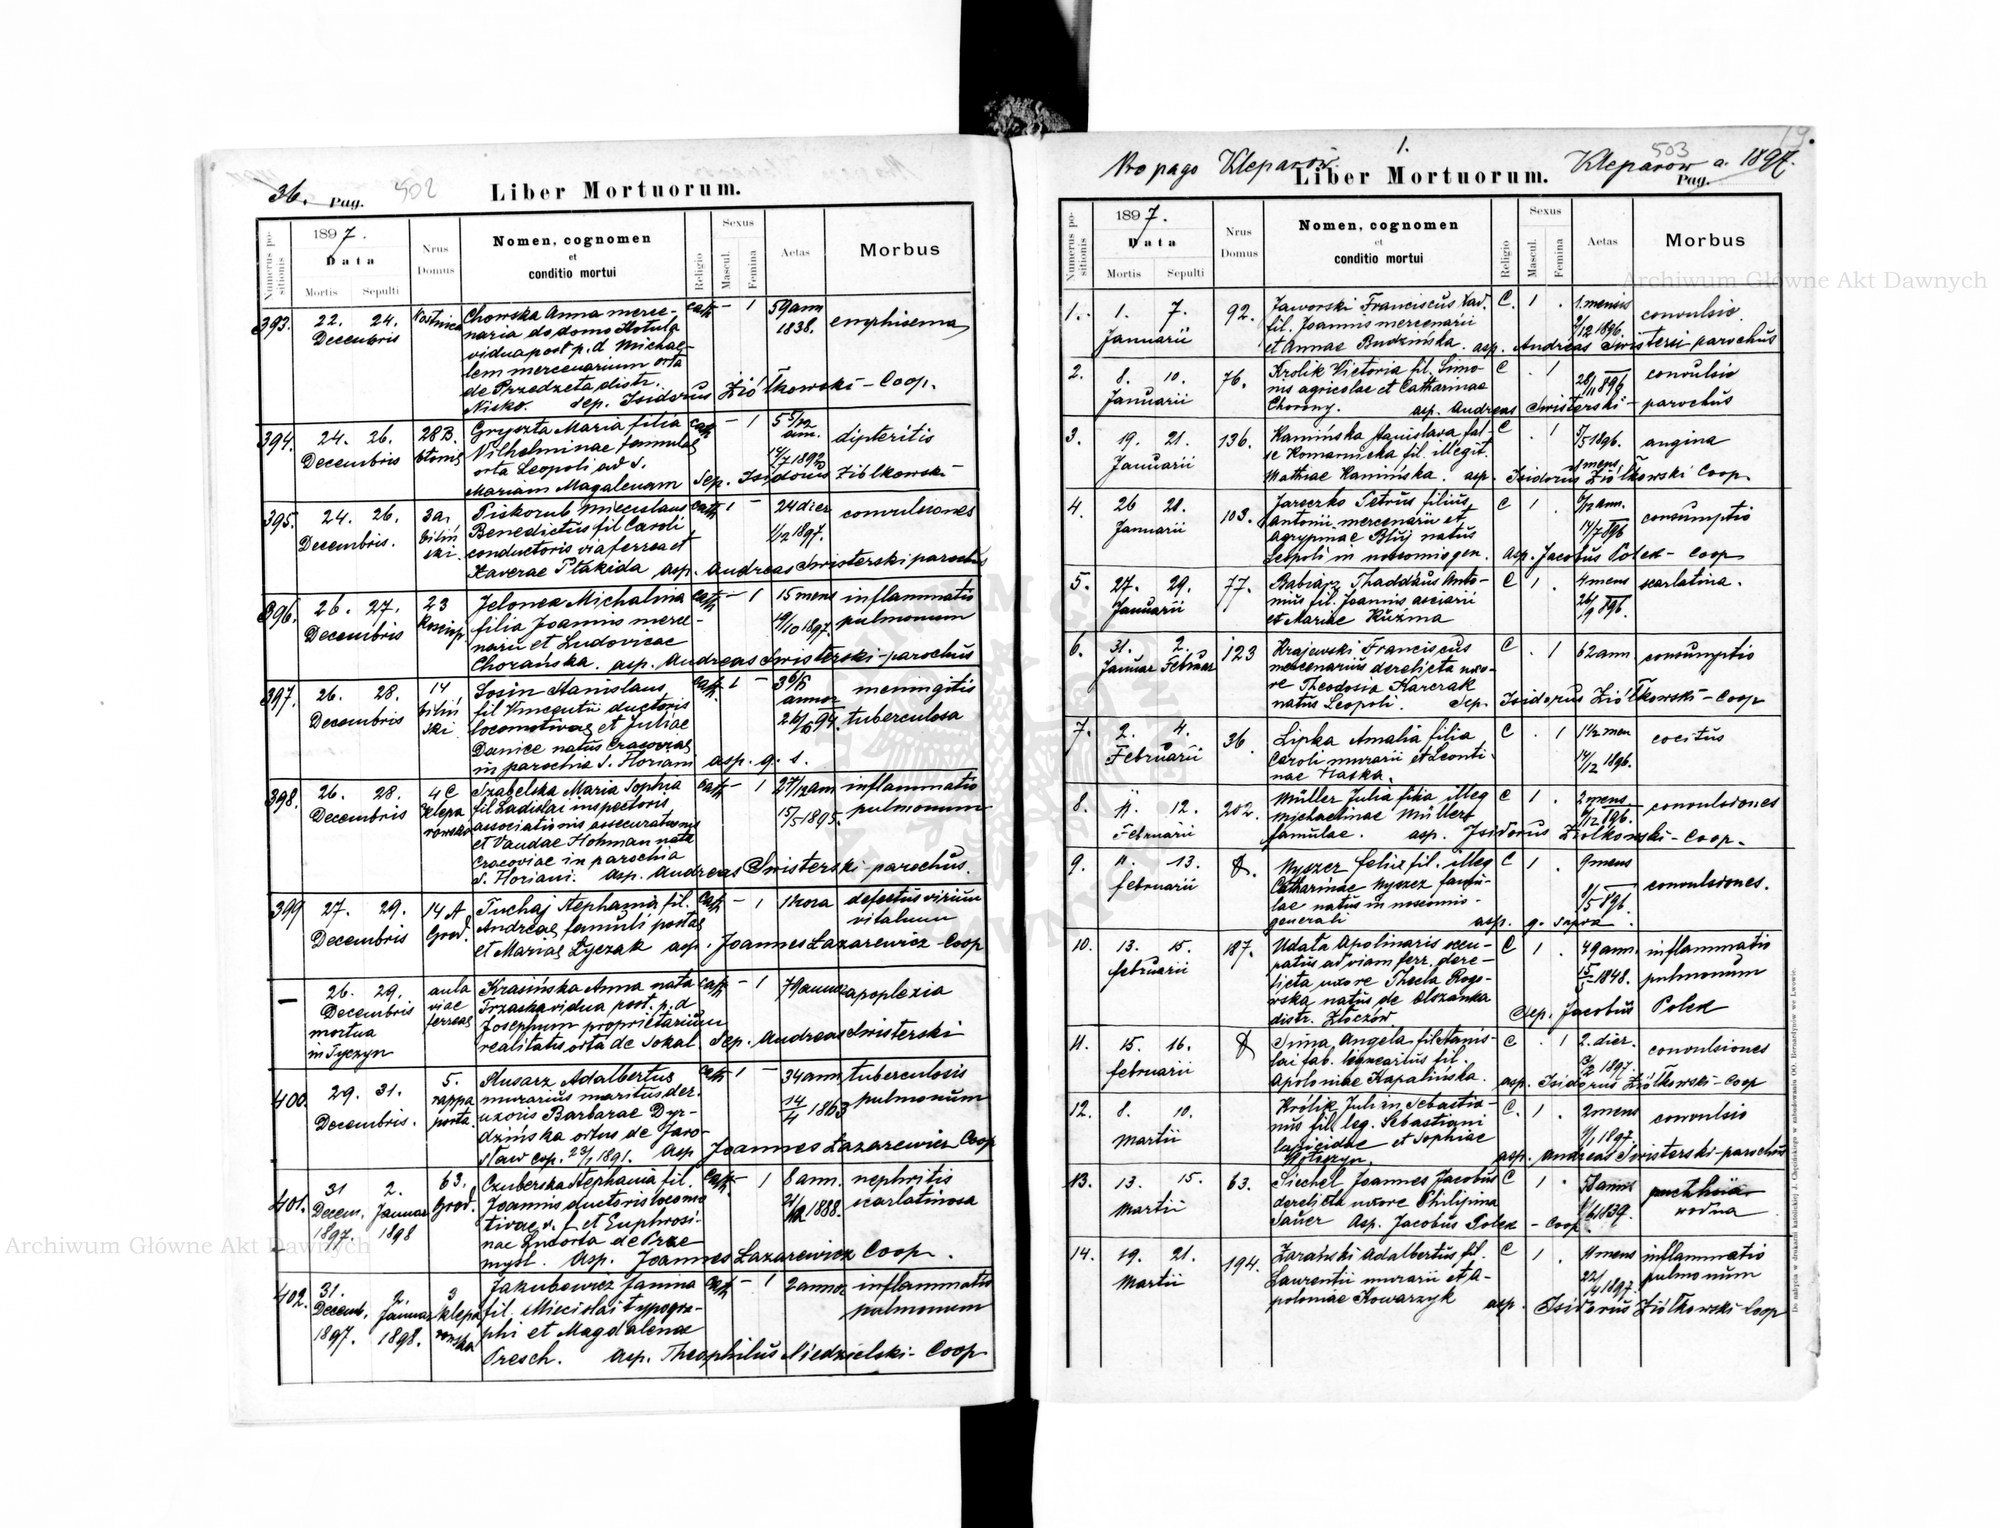 36. Pag. 502
Liber Mortuorum.
Numerus positionis
1897.
Data
Mortis Sepulti
Nrus Domus
Nomen, cognomen
et
conditio mortui
Religio
Sexus
Mascul.
Femina
Aetas
Morbus
393. 22. 24. Decembris
Chowska Anna merce-
naria de domo Kotula
vidua post p. d. Michae-
lem mercenarium orta
de Przedzeta distr.
Nisko. Sep. Isidorus Ziółkowski - Coop.
cath - 1 59 ann 1838. emphisema
394. 24. 26. Decembris 28B.
Gryszta Maria filia
Vilhelminae famulae
orta Leopoli ad S.
Mariam Magalenam Sep. Isidorus Ziółkowski
cath - 1 5 5/12 ann. 14/7 1892 dipteritis
395. 24. 26. Decembris. 3a.
Piskorub Miecislaus
Benedictus fil Caroli
conductoris viaferrea et
Xaverae Ptakida asp. Andreas Swisterski parochus
cath 1 - 24 dier 1/12 1897. convulsiones
396. 26. 27. Decembris 23
Jelonek Michalina
filia Joannis merce-
narii et Ludovicae
Chorańska. asp. Andreas Swisterski - parochus
cath - 1 15 mens 19/10 1897. inflammatio
pulmonum
397. 26. 28. Decembris 14
Sosin Stanislaus
fil Kinegutii ductoris
locomotivae et Juliae
Danice natus Cracoviae
in parochia S. Floriani asp. q. s.
cath 1 - meningitis
tuberculosa
398. 26. 28. Decembris 4C Kleparowska
Szabelska Maria Sophia
fil Ladislai inspectoris
associationis assecurationis
et Vandae Hohman nata
Cracoviae in parochia
S. Floriani. asp. Andreas Swisterski - parochus.
cath - 1 15/5 1895. inflammatio
pulmonum
399 27. 29. Decembris 14A Grod.
Tuchaj Stephania fil.
Andreae famuli postae
et Mariae Łyczak asp. Joannes Lazarewicz - Coop
cath - 1 1 hora defectus virium
vitalium
— 26. 29. Decembris
mortua
in Tyczyn
aula
viae
ferreae
Krasińska Anna nata
Trzaska vidua post. p. d
Josephum proprietarium
realitatis orta de Sokal Sep. Andreas Swisterski
cath - 1 apoplexia
400. 29. 31. Decembris. 5.
Slusarz Adalbertus
murarius maritus der.
uxoris Barbarae Dyr-
dzińska ortus de Jaro-
sław cop. 23/1 1891. asp Joannes Lazarewicz Coop
cath 1 - 34 ann 14/4 1863 tuberculosis
pulmonum
401. 31 Decem. 1897. 2. Januar 1898 63. Grod.
Czuberska Stephania fil.
Joannis ductoris locomo
tivae v. f. et Euphrosi-
nae orta de Prze
mysl. Asp. Joannes Lazarewicz Coop.
cath - 1 8 ann. 1888. nephritis
scarlatinosa
402. 31. Decemb. 1897. 2. Januar 1898. 3 Kleparowska
Jakubowicz Janina
fil. Miecislai typogra-
phi et Magdalenae
Presch. Asp. Theophilus Niedzielski - Coop
cath - 1 2 annor inflammatio
pulmonum
Pro pago Kleparow.
1.
Kleparow a. 1897.
503
19.
Liber Mortuorum.
Pag.
Numerus positionis
1897.
Data
Mortis Sepulti
Nrus Domus
Nomen, cognomen
et
conditio mortui
Religio
Sexus
Mascul.
Femina
Aetas
Morbus
1. 1. 7. Januarii 92.
Jaworski Franciscus Xav.
fil. Joannis mercenarii
et Annae Budzińska. asp. Andreas Swisterski parochus
C. 1 . 1. mensis 9/12 1896. convulsio.
2. 8. 10. Januarii 76.
Krolik Victoria fil. Simo-
nis agricolae et Catharinae
Chorony. asp. Andreas Swisterski - parochus
C . 1 28/11 896 convulsio
3. 19. 21. Januarii 136.
Kamińska Stanislava fal-
se Komarnicka fil. illegit.
Mathiae Kamińska. asp. Isidorus Ziółkowski Coop
C . 1 5/5 1896. angina
4. 26 28. Januarii 103.
Jaroczko Petrus filius
Antonii mercenarii et
Agrypinae Bluj natus
Leopoli in nosocomio gen. Asp. Jacobus Polek - Coop
C 1 . 14/7 896 consumptio
5. 27. 29. Januarii 77.
Babiarz Thaddäus Anto-
nius fil. Joannis asciarii
et Mariae Kuźma
C 1 . 4 mens 26/9 896. scarlatina.
6. 31. 2. Januar Februar 123
Krajewski Franciscus
mercenarius derelicta uxo-
re Theodosia Karczak
natus Leopoli. Sep. Isidorus Ziółkowski - Coop
C . 1 62 ann. consumptio
7. 2. 4. Februarii 36.
Lipka Amalia filia
Caroli murarii et Leonti-
nae Haska.
C . 1 1 1/2 men 14/12 1896. cocitus
8. 11. 12. Februarii 202.
Müller Julia filia illeg
Michaelinae Müller
famulae. asp. Isidorus Ziółkowski - Coop.
C 1 . 2 mens convulsiones
9. 11. 13. Februarii
Nyszez Felix fil. illeg
Catharinae Nyszez famu-
lae natus in nosocomio
generali asp. q. supra
C 1 . 9 mens 8/5 896. convulsiones.
10. 13. 15. Februarii 187.
Udata Apolinaris occu-
patus ad viam ferr. dere-
licta uxore Thecla Rogo-
wska natus de Olszanka
distr. Złoczów. Sep. Jacobus Polek
C 1 . 49 ann. 1848. inflammatio
pulmonum
11. 15. 16. Februarii
Angela fil Stanis-
lai fab. lignearius fil.
Apoloniae Kapalińska. asp. Isidorus Ziółkowski - Coop
C . 1 2. dier. 1897. convulsiones
12. 8. 10. Martii
Królik Julian Sebastia-
nus fil. leg. Sebastiani
lapicidae et Sophiae
asp. Andreas Swisterski - parochus
C. 1 . 2 mens 9/1 1897. convulsio
13. 13. 15. Martii 63.
Siechel Joannes Jacobus
derelicta uxore Philipina
Sauer Asp. Jacobus Polek - Coop
C 1 . 1839.
14. 19. 21. Martii 194.
Zarański Adalbertus fil.
Laurentii murarii et A-
poloniae Kowarzyk asp. Isidorus Ziółkowski Coop
C 1 . 11 mens 22/4 1897. inflammatio
pulmonum
Archiwum Główne Akt Dawnych
Archiwum Główne Akt Dawnych